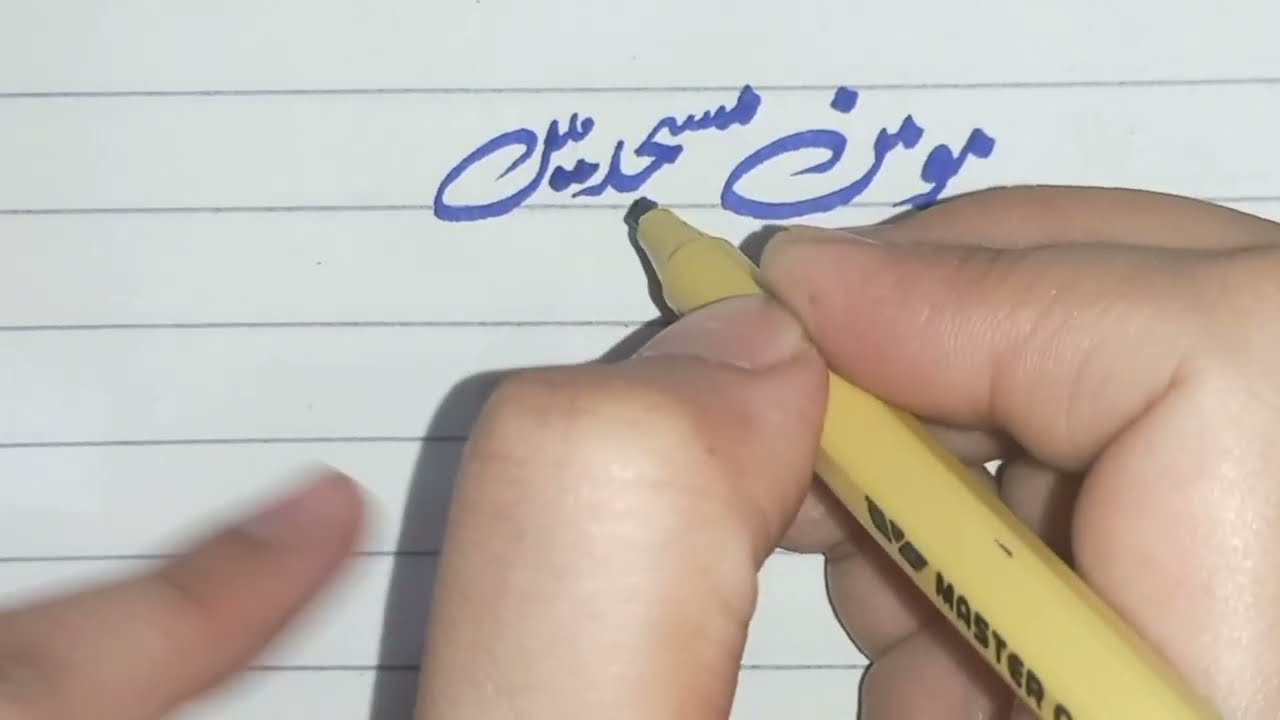 مومن مسجد میں
MASTER